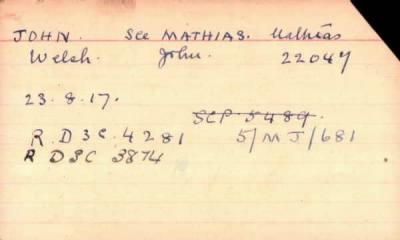 JOHN. See MATHIAS. Mathias
Welch. John. 22047
23.8.17.
SCP 5489.
R D 3C. 4281 5/MJ/681
R D 3C 3874